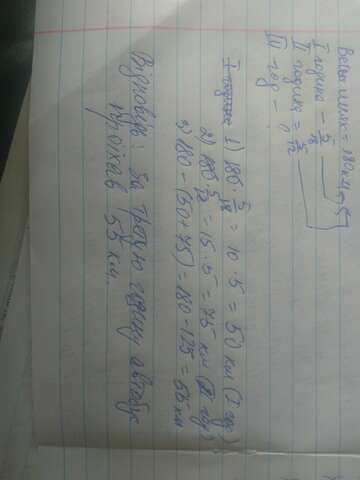 Весь шлях = 180 км
I година – 5/18
II година = 5/12
III год – ?
I година 1) 180 · 5/18 = 10 · 5 = 50 км (I год)
2) 180 · 5/12 = 15 · 5 = 75 км (II год)
3) 180 – (50 + 75) = 180 – 125 = 55 км
Відповідь: За третю годину автобус
проїхав 55 км.